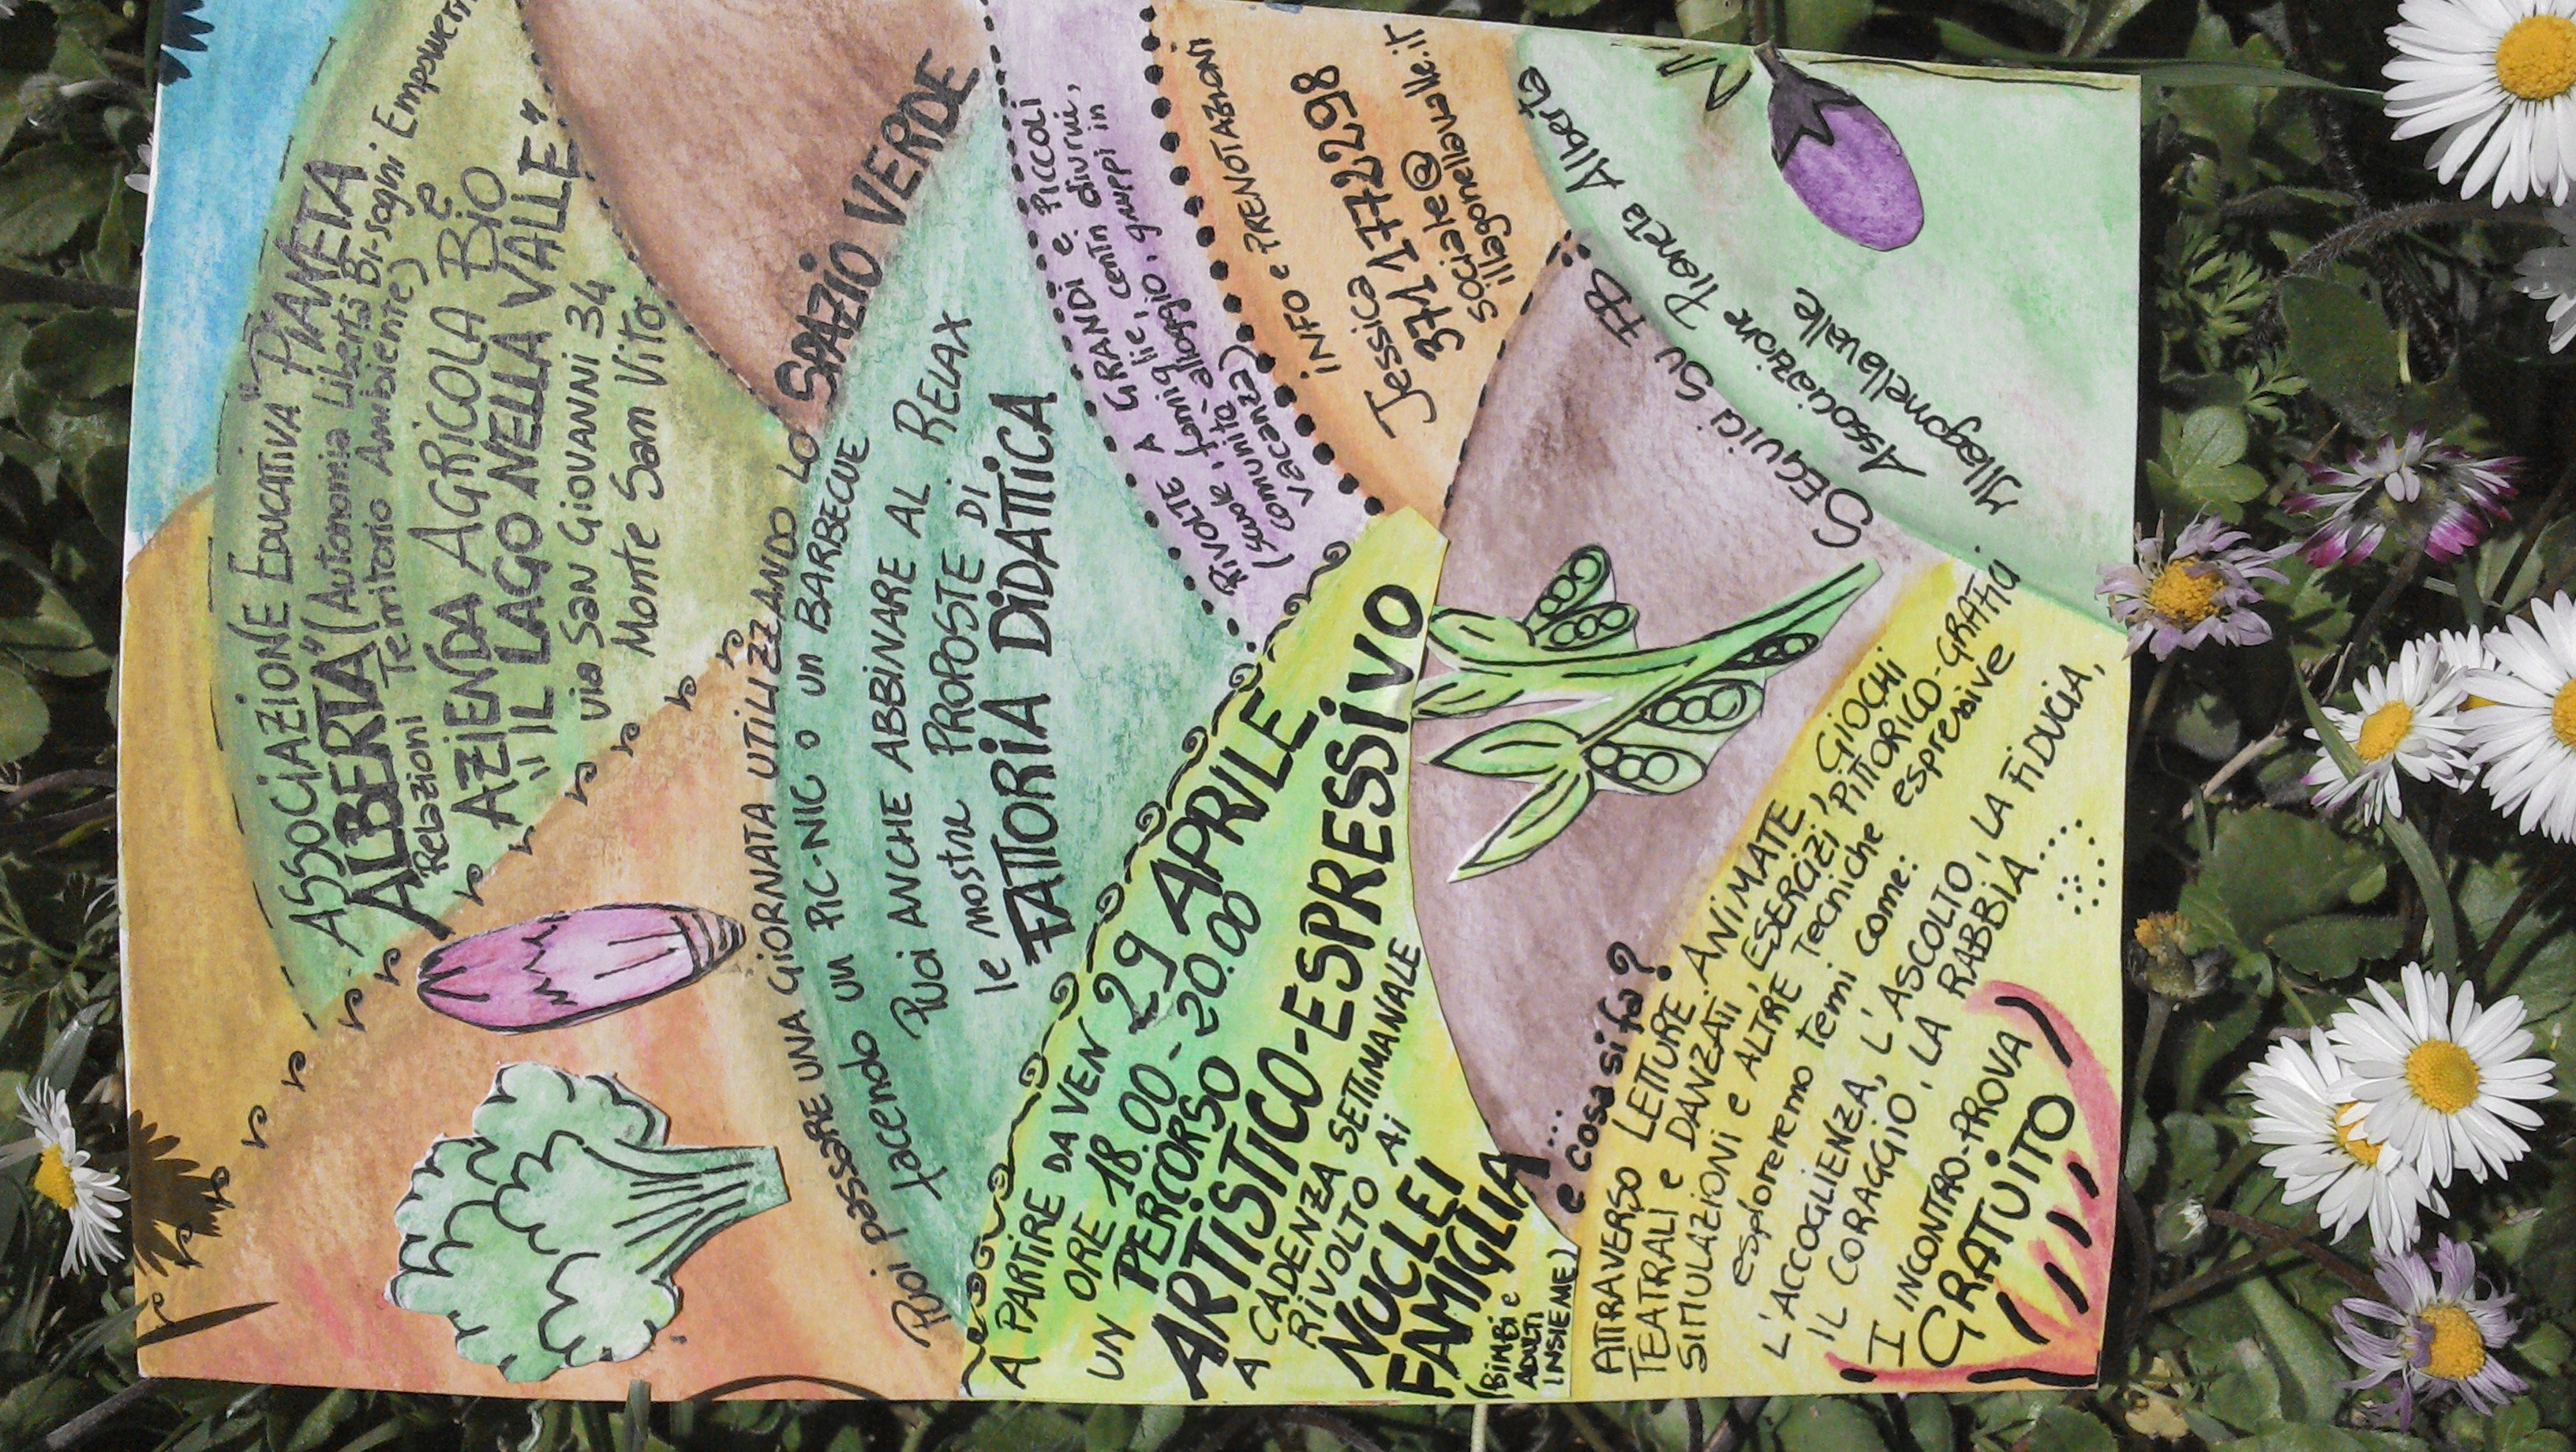 ASSOCIAZIONE EDUCATIVA "PIANETA
ALBERTA" (Autonomia Libertà Bi-sogni
Relazioni Territorio Ambiente) e
AZIENDA AGRICOLA BIO
"IL LAGO NELLA VALLE"
via San Giovanni 34
Monte San Vito
Puoi passare UNA GIORNATA UTILIZZANDO LO SPAZIO VERDE
facendo un PIC-NIC o un BARBECUE
Puoi ANCHE ABBINARE AL RELAX
le nostre PROPOSTE DI
FATTORIA DIDATTICA
RIVOLTE A GRANDI e PICCOLI
(scuole, famiglie, centri diurni,
comunità-alloggio, gruppi in
vacanza)
INFO e PRENOTAZIONI
Jessica
sociale@
illagonellavalle.it
SEGUICI SU FB
Associazione Pianeta Alberta
Illagonellavalle
A PARTIRE DA VEN 29 APRILE
ORE 18.00-20.00
UN PERCORSO
ARTISTICO-ESPRESSIVO
A CADENZA SETTIMANALE
RIVOLTO AI
NUCLEI
FAMIGLIA...
(BIMBI e
ADULTI
INSIEME)
e cosa si fa?
ATTRAVERSO LETTURE ANIMATE, GIOCHI
TEATRALI e DANZATI, ESERCIZI PITTORICO-GRAFICI.
SIMULAZIONI e ALTRE Tecniche espressive
esploreremo temi come:
L'ACCOGLIENZA, L'ASCOLTO, LA FIDUCIA,
IL CORAGGIO, LA RABBIA....
I INCONTRO-PROVA
GRATUITO